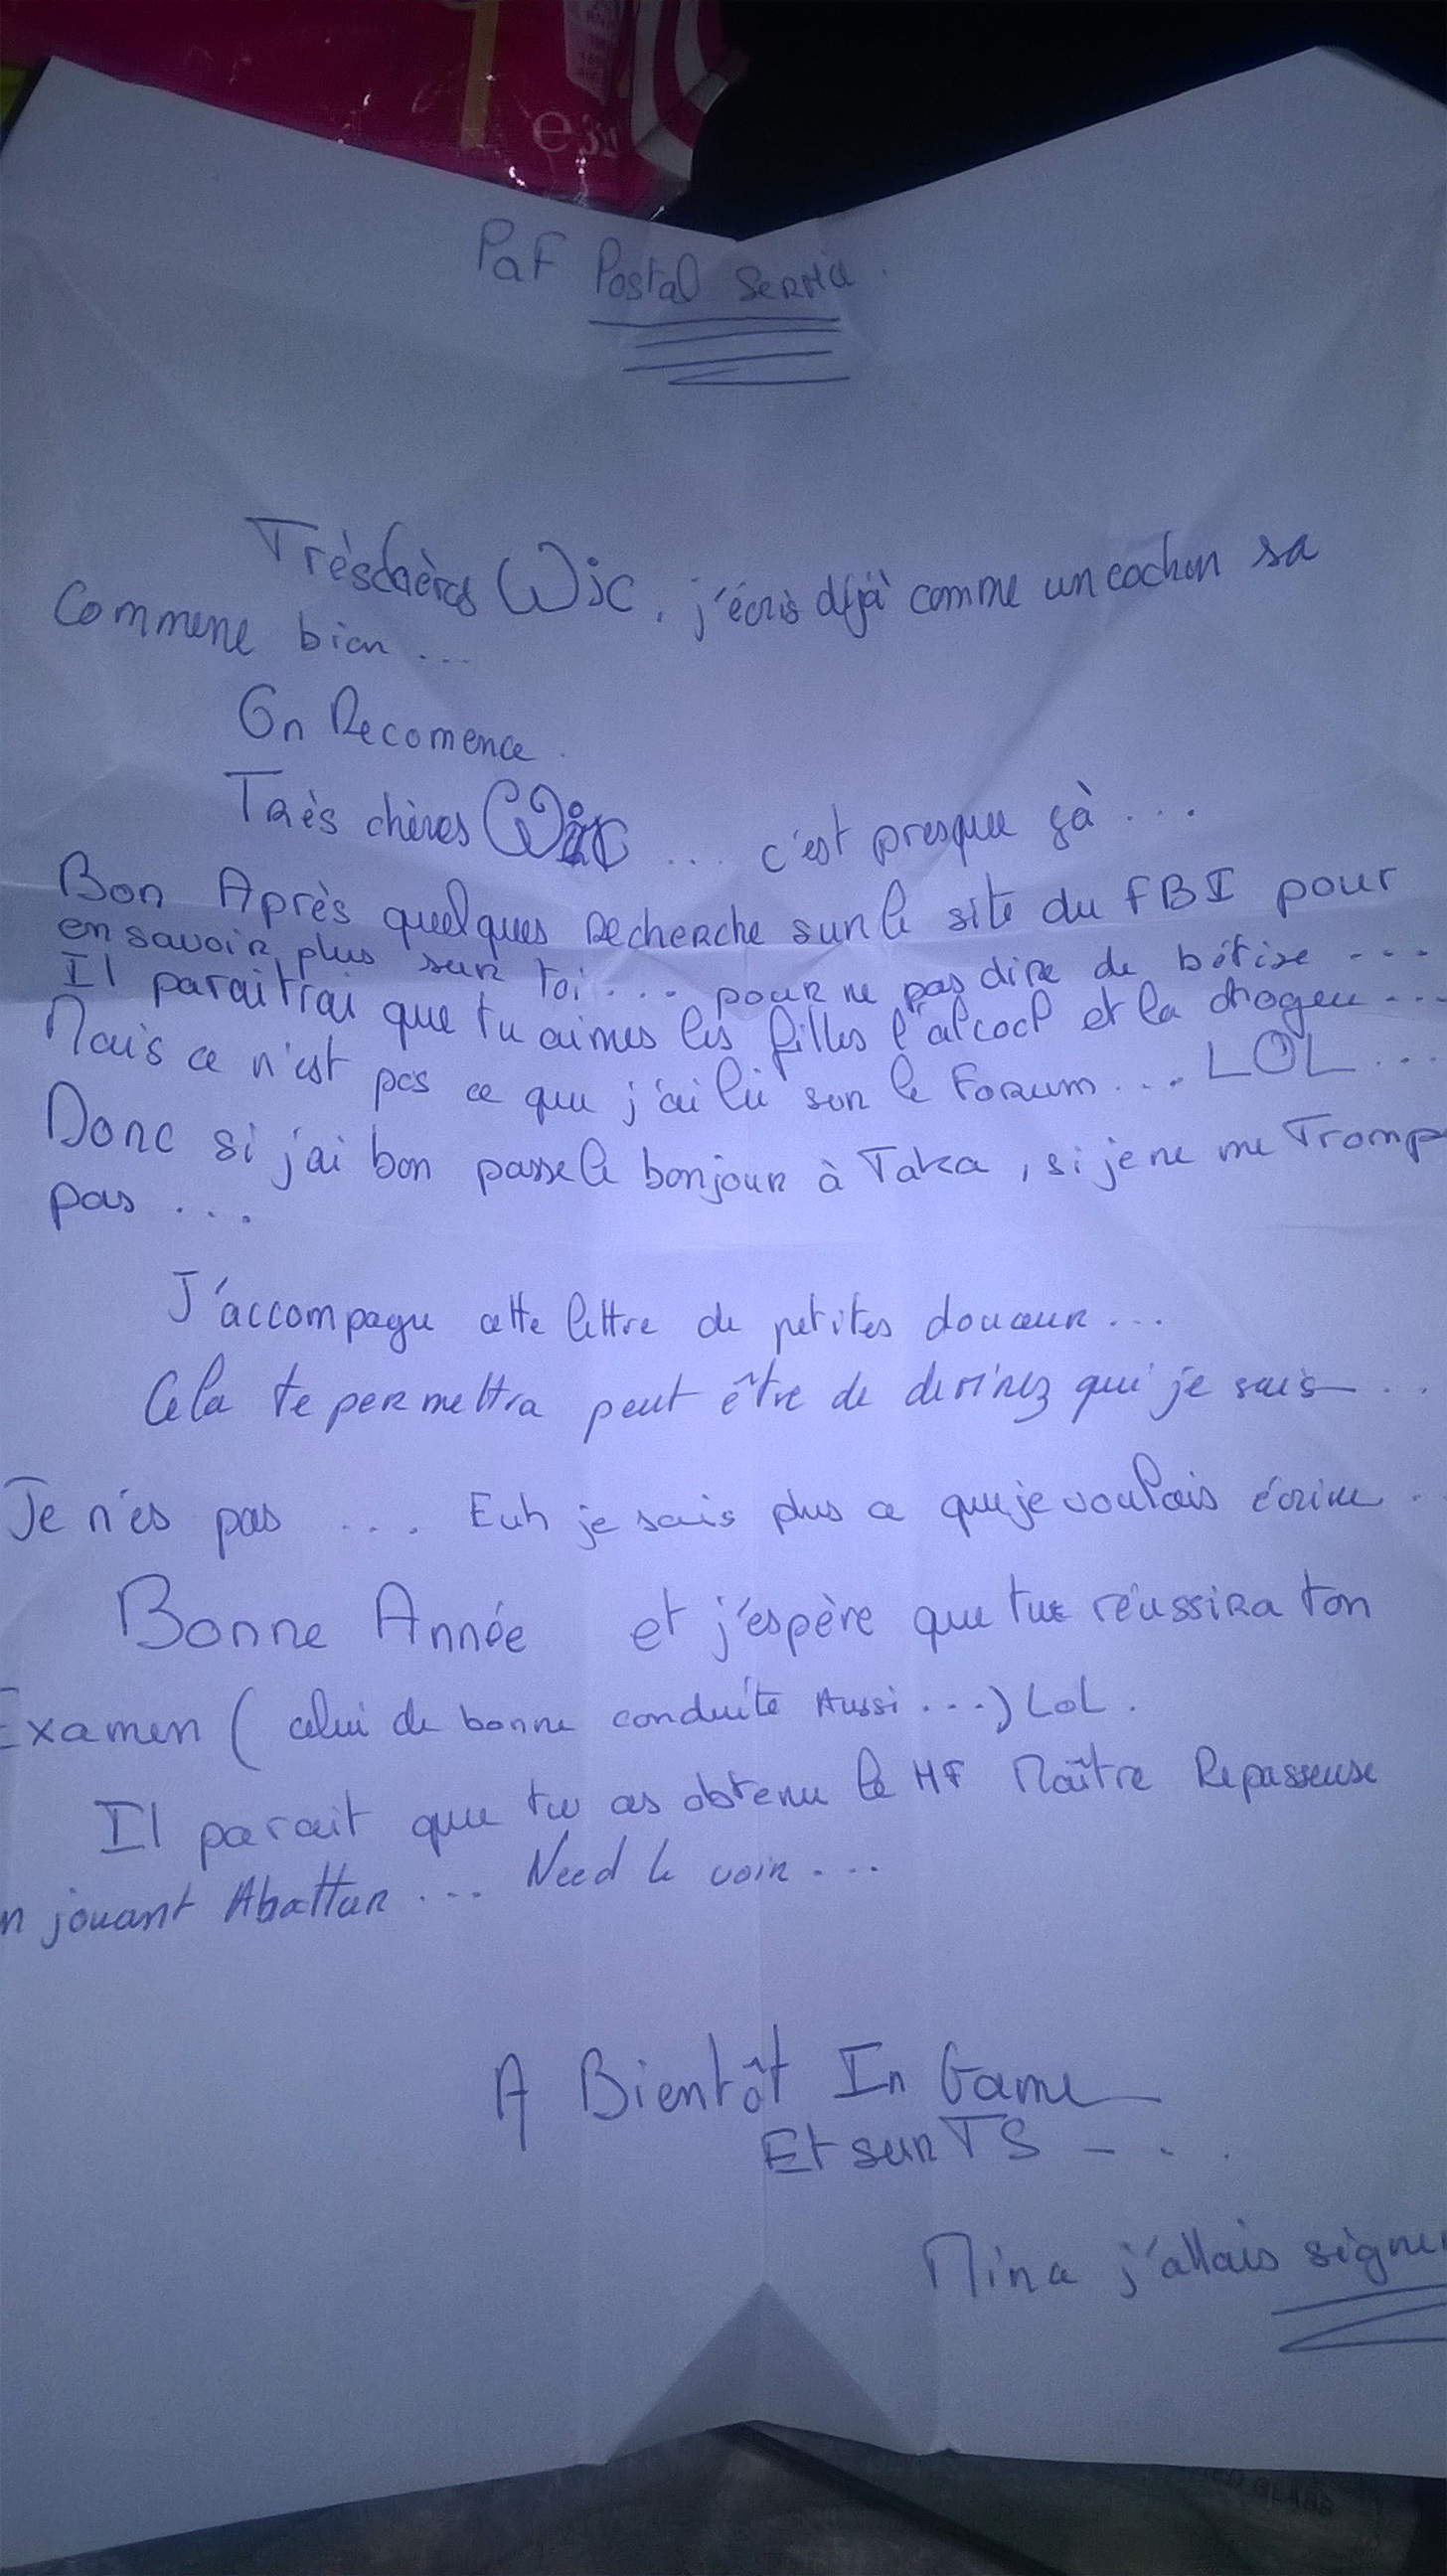 PaF Postal Service.
Très chères Wic, j'écris déjà comme un cochon sa
Commene bien ...
On Recomence.
Très chères Wic ... c'est presque çà ...
Bon Après quelques recherche sur le site du FBI pour
en savoir plus sur toi .... pour ne pas dire de bétise ....
Il paraitrai que tu aimes les filles l'alcool et la drogue ...
Mais ce n'est pas ce que j'ai lu sur le Forum .... LOL ...
Donc si j'ai bon passe le bonjour à Taka, si je ne me Tromp
pas ...
J'accompagne cette lettre de petites douceur ...
Cela te permettra peut être de devinez qui je suis ..
Je n'es pas .... Euh je sais plus ce que je voulais écrire ..
Bonne Année et j'espère que tu réussira ton
Examen (celui de bonne conduite Aussi ...) LoL.
Il parait que tu as obtenu le HF Maître Repasseuse
n jouant Abattar ... Need le voir ...
A Bientôt In Game
Et sur TS - . .
Mina j'allais signer